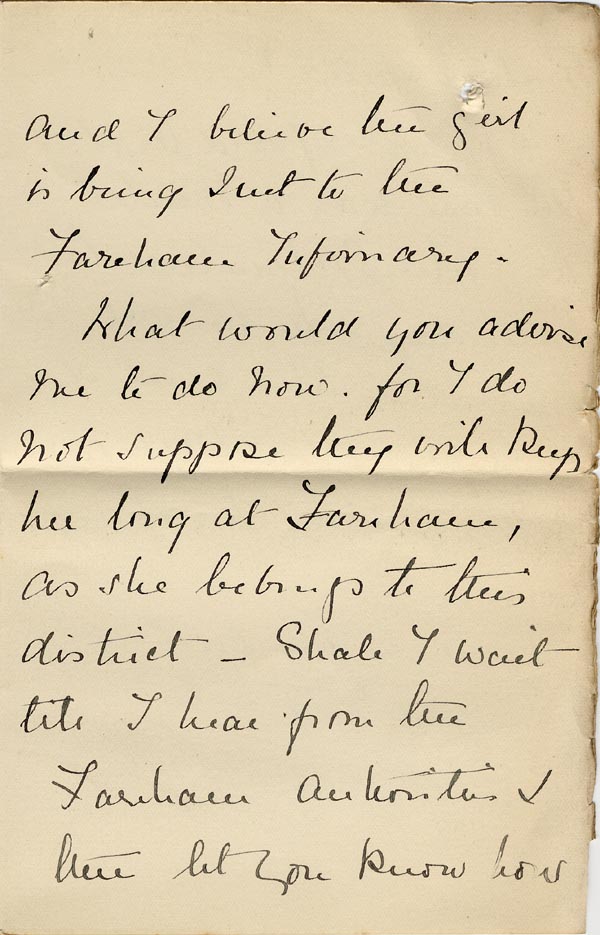 and I believe the girl
is being sent to the
Farnham Infirmary.
What would you advise
me to do now. for I do
not suppose they will keep
her long at Farnham,
as she belongs to this
district - Shall I wait
till I hear from the
Farnham Authorities &
then let you know how